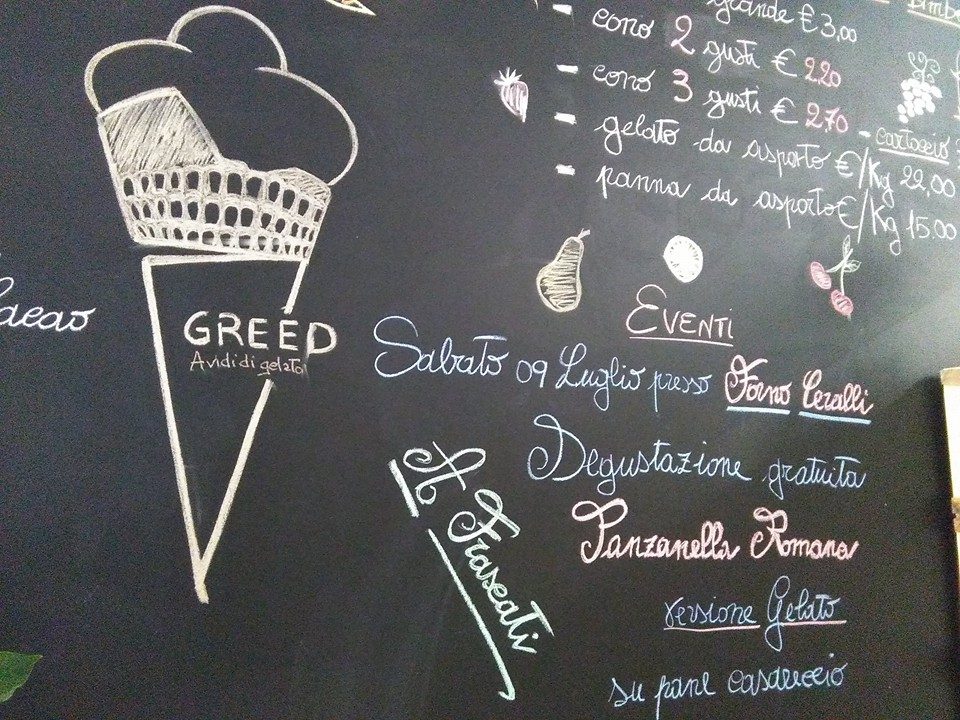 grande € 3,00
- cono 2 gusti € 2.20
- cono 3 gusti € 2.70
- gelato da asporto €/Kg 22,00
- panna da asporto €/Kg 15.00
- cartoccio
Cacao
GREED
Avidi di gelato
EVENTI
Sabato 09 Luglio presso Forno Ceralli
A Frascati
Degustazione gratuita
Panzanella Romana
versione Gelato
su pane casareccio